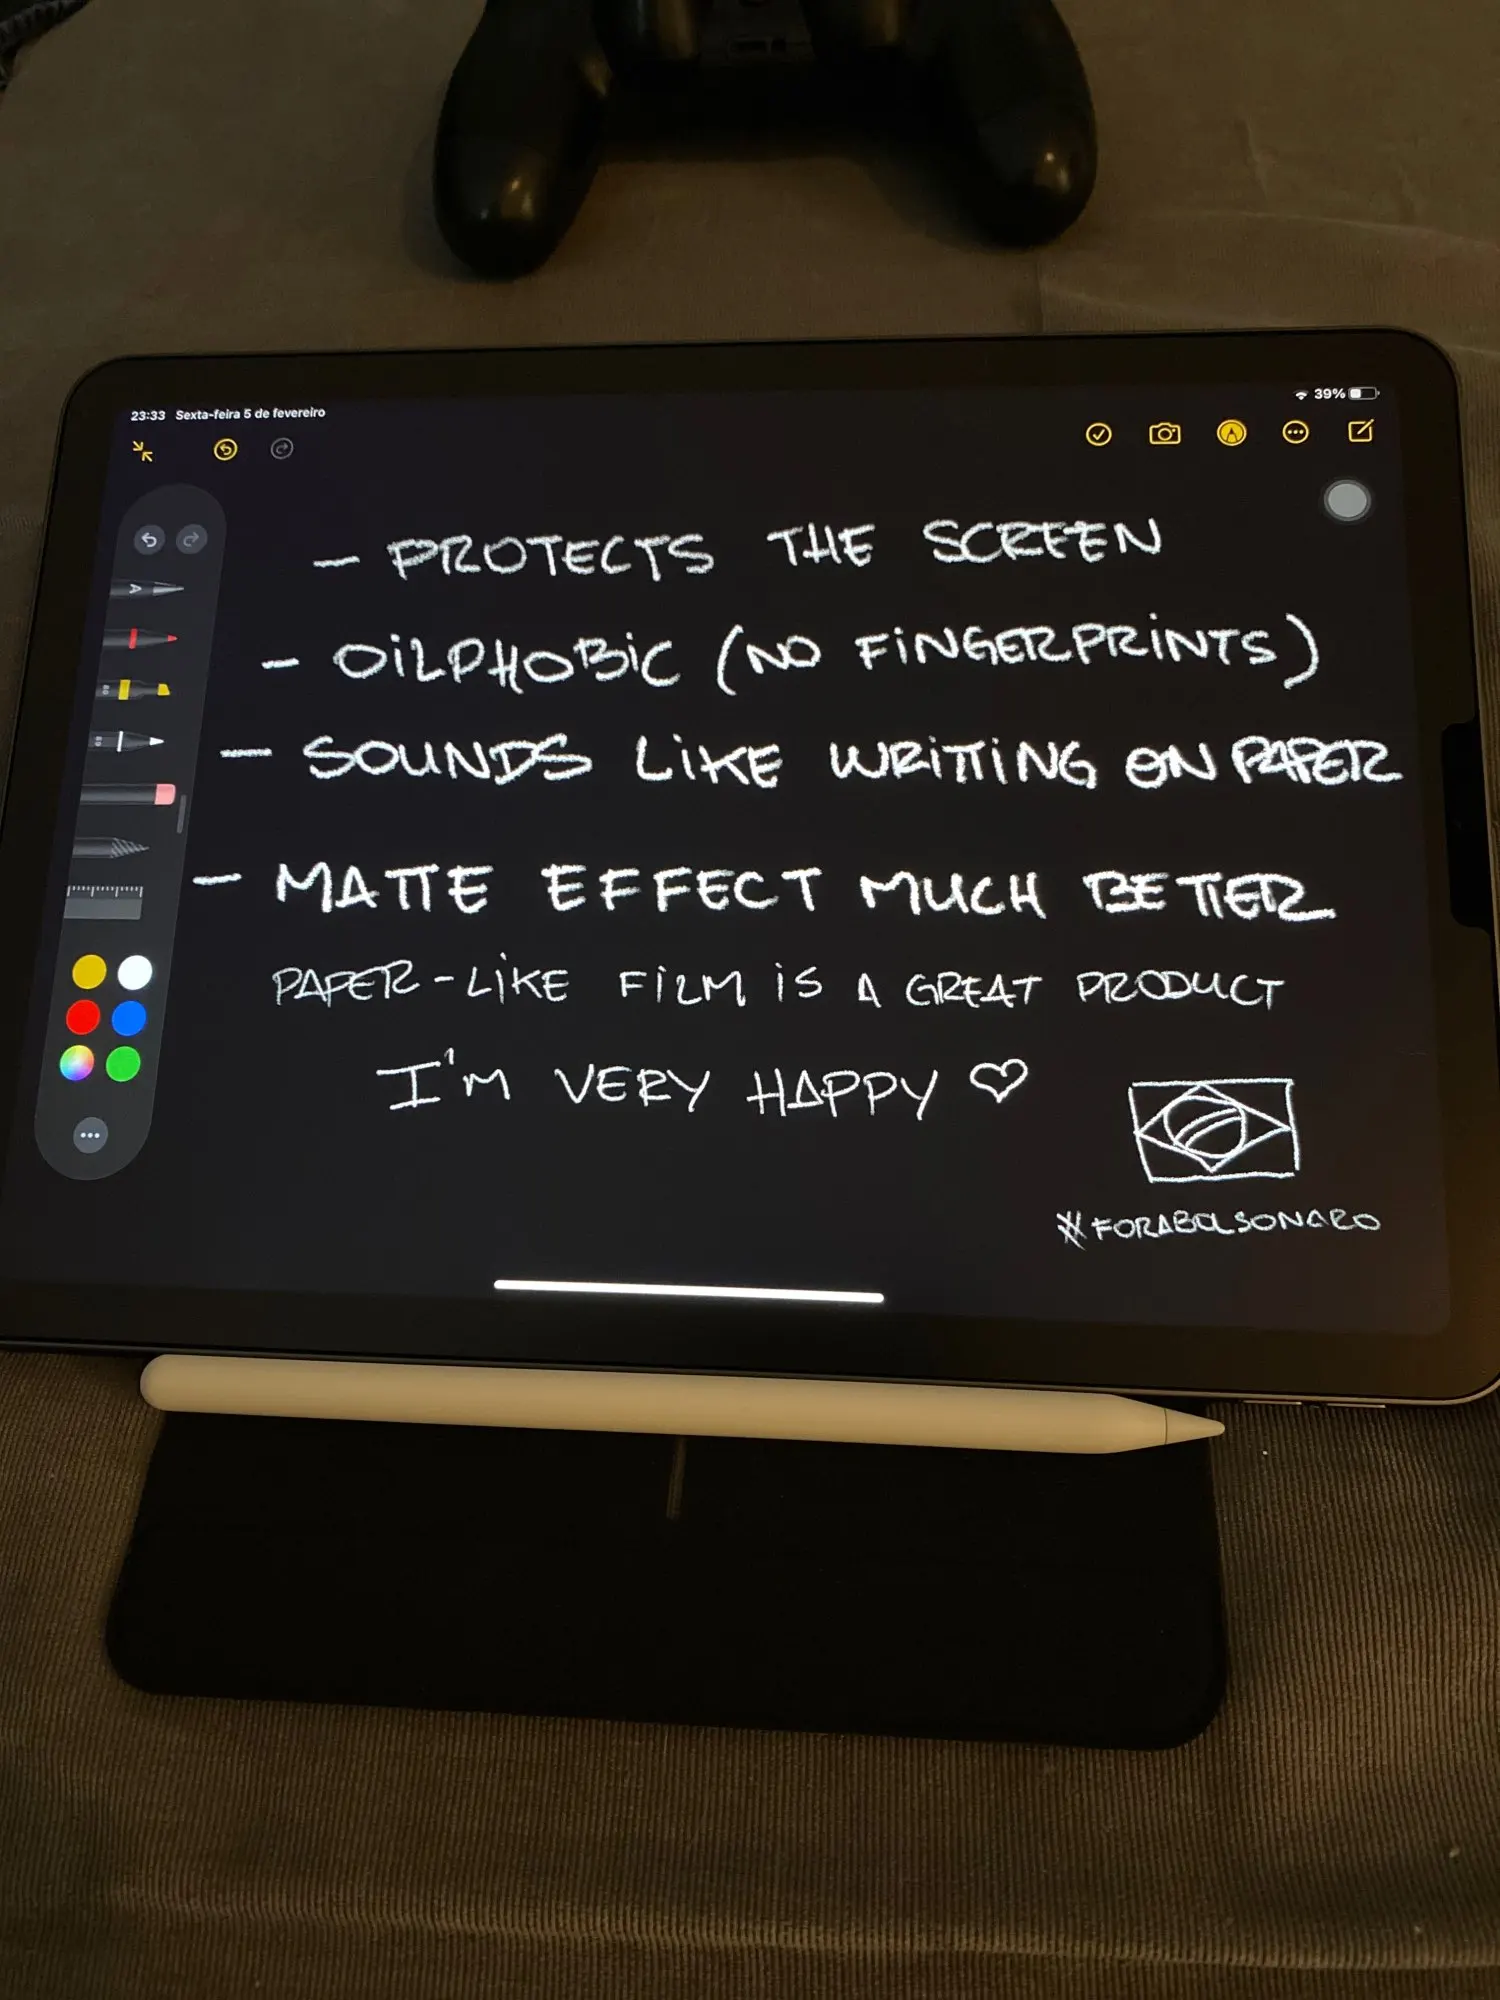 23:33 Sexta-feira 5 de fevereiro
39%
- PROTECTS THE SCREEN
- OILPHOBIC (NO FINGERPRINTS)
- SOUNDS LIKE WRITTING ON PAPER
- MATTE EFFECT MUCH BETTER
PAPER-LIKE FILM IS A GREAT PRODUCT
I'M VERY HAPPY ♡
#FORABOLSONARO